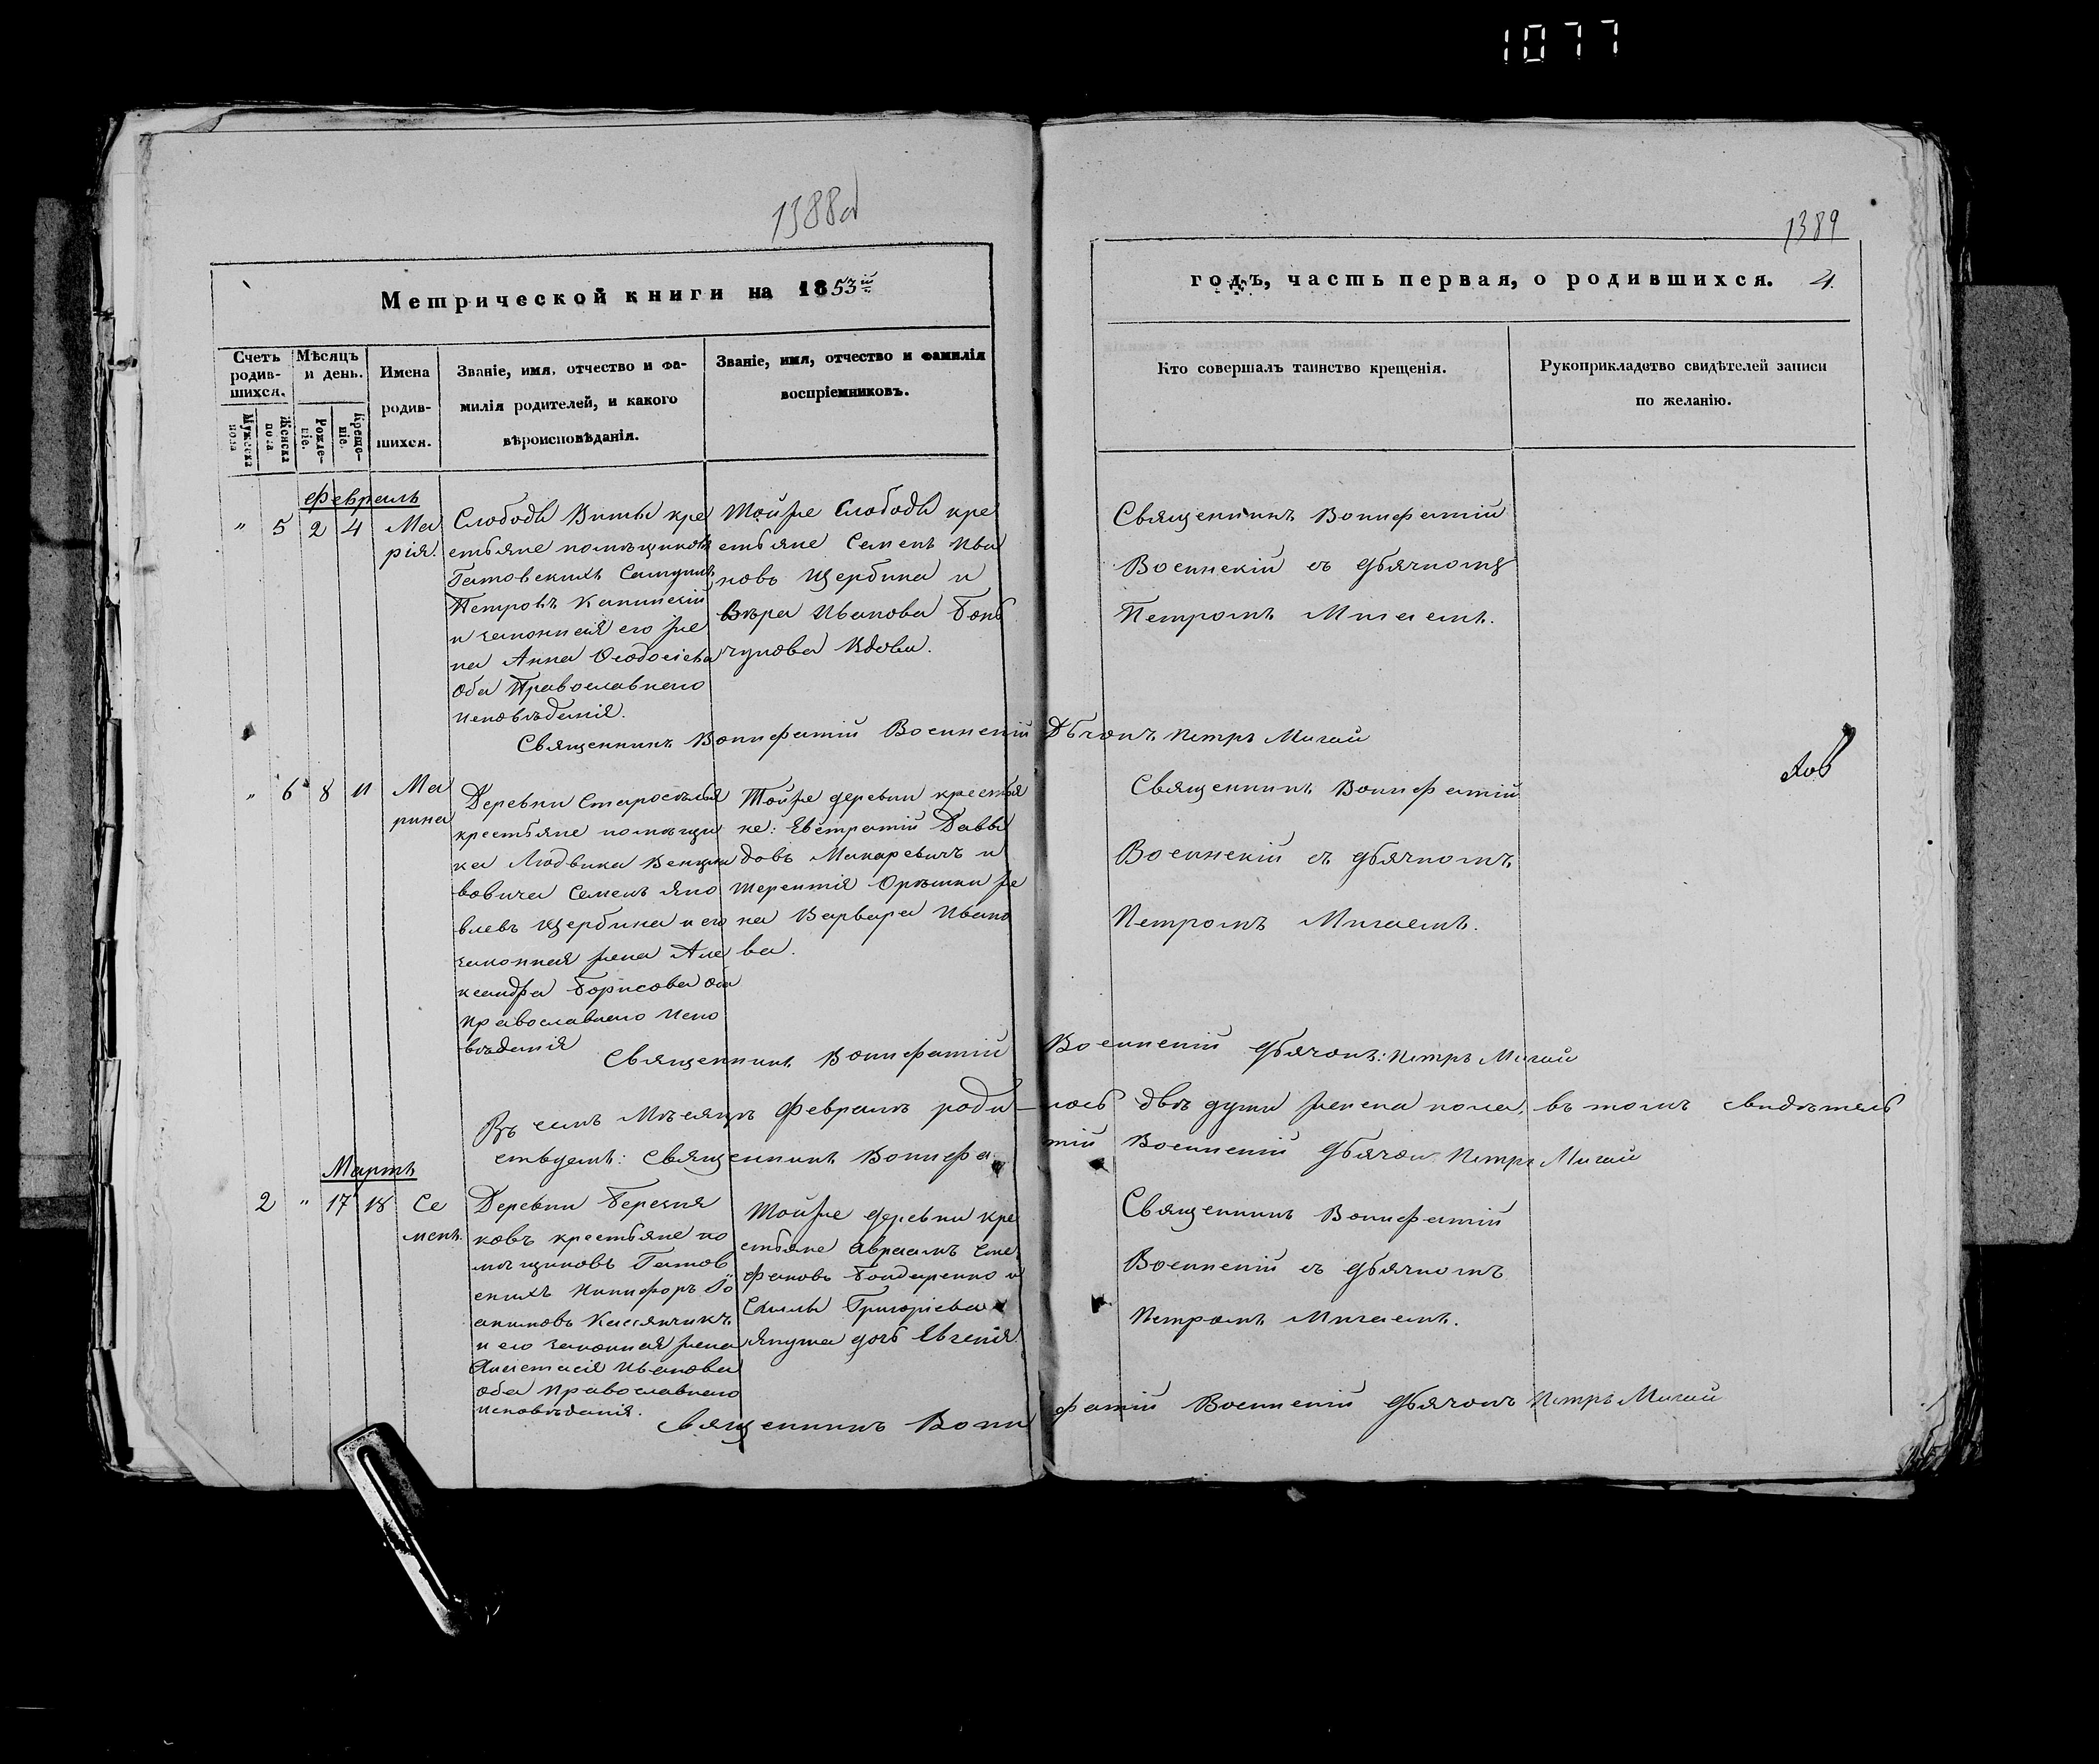 1077
1388об
1389
Метрической книги на 1853й
годъ, часть первая, о родившихся. 4.
Счетъ родив-шихся.
Мужеска пола
Женска пола
Мѣсяцъ и день.
Рожде-ніе.
Креще-ніе.
Имена
родив-
шихся.
Званіе, имя, отчество и фа-
милія родителей, и какого
вѣроисповѣданія.
Званіе, имя, отчество и фамилія
воспріемниковъ.
Кто совершалъ таинство крещенія.
Рукоприкладство свидѣтелей записи
по желанію.
Февраль
" 5 2 4 Ма
рія.
Слободы Виты кре
стьяне помѣщиковъ
Петровъ
и законная его же
на Анна Ѳеодосіева
оба Православнаго
исповѣданія.
Тойже Слободы кре
стьяне Семенъ Ива
новъ Щербина и
Вѣра Иванова
вдова.
Священникъ Вонифатій
Воинскій съ дьячкомъ
Петромъ Мигаемъ.
Священникъ Вонифатій Воинскій Дьячокъ Петръ Мигай
" 6 8 11 Ма
рина
Деревни Староселья
крестьяне помѣщи
ка Людвика
Семенъ Яко
влевъ Щербина и его
законная жена Але
ксандра Борисова оба
Православнаго Испо
вѣданія
Тойже деревни крестья
не: Евстратій Давы
довъ Макаревичъ и
Терентія Орѣшки же
на Варвара Ивано
ва.
Священникъ Вонифатій
Воинскій съ дьячкомъ
Петромъ Мигаемъ.
Священникъ Вонифатій Воинскій дьячокъ: Петръ Мигай
Въ семъ Мѣсяцѣ Февралѣ роди-лось двѣ души женска пола, въ томъ свидѣтель
ствуемъ: Священникъ Вонифатій Воинскій дьячокъ Петръ Мигай
Мартъ
2 " 17 18 Се
менъ.
Деревни Березня
ковъ крестьяне по
мѣщиковъ
Никифоръ Іо
акимовъ Касянчикъ
и его законная жена
Анастасія Иванова
оба Православнаго
исповѣданія.
Тойже деревни кре
стьяне Авраамъ Сте
фановъ Бондаренко и
Григоріева
дочь Евгенія.
Священникъ Вонифатій
Воинскій съ дьячкомъ
Петромъ Мигаемъ.
Священникъ Вонифатій Воинскій дьячокъ Петръ Мигай